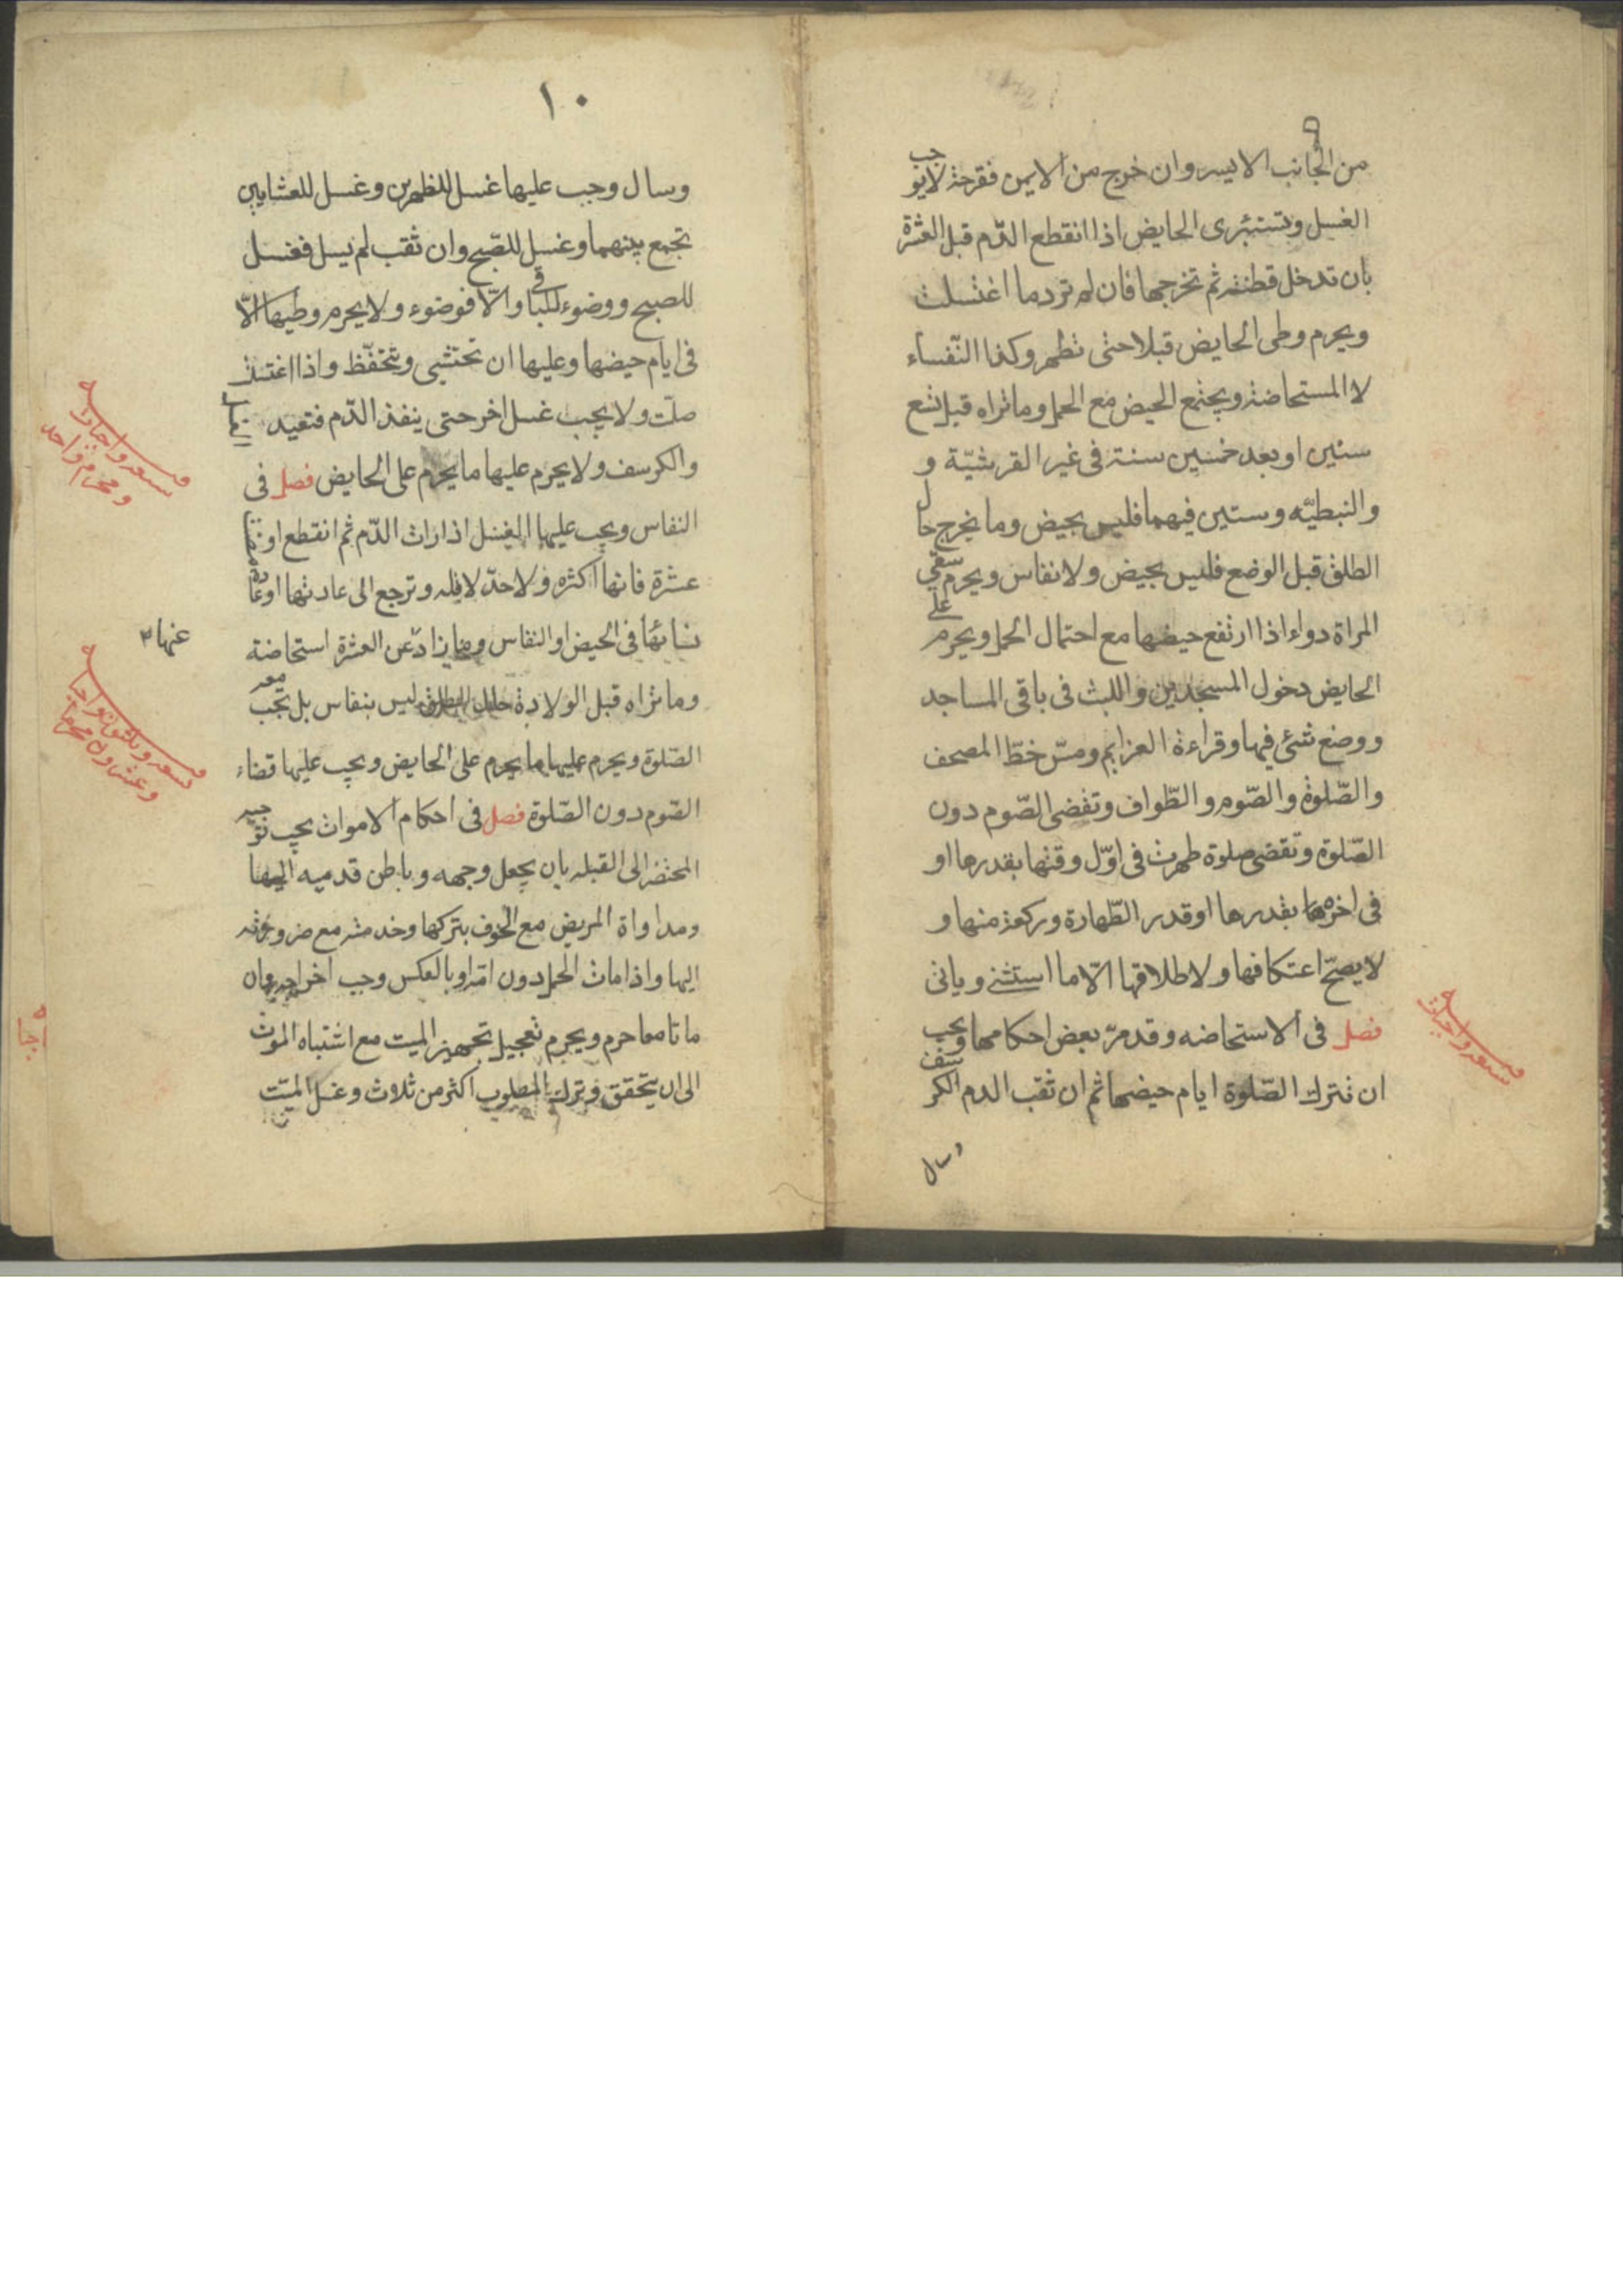 ٩
من الجانب الايسر وان خرج من الايمن فقرحة لايوجب
الغسل وتستبرى الحايض اذا انقطع الدّم قبل العشرة
بان تدخل قطنة ثم تخرجها فان لم تر دما اغتسلت
ويحرم وطى الحايض قبلا حتى تطهر وكذا النّفساء
لا المستحاضة ويجتمع الحيض مع الحمل وما تراه قبل تسع
سنين او بعد خمسين سنة فى غير القرشيّة و
والنبطيّه وستين فيهما فليس بحيض وما يخرج حال
الطلق قبل الوضع فليس بحيض ولا نفاس ويحرم سقي
المراة دواء اذا ارتفع حيضها مع احتمال الحمل ويحرم على
الحايض دخول المسجدين واللبث فى باقى المساجد
ووضع شئ فيها وقراءة العزايم ومسّ خطّ المصحف
والصّلوة والصّوم والطّواف وتقضى الصّوم دون
الصّلوة وتقضى صلوة طهرت فى اوّل وقتها بقدرها او
فى اخرها بقدرها او قدر الطّهارة وركعة منها و
لا يصحّ اعتكافها ولا طلاقها الّا ما استثنى وياتى
فصل فى الاستحاضه وقد مرّ بعض احكامها ويجب
ان تترك الصّلوة ايام حيضها ثم ان ثقب الدم الكرسف
وسال
تسعه واجبات
١٠
وسال وجب عليها غسل للظهرين وغسل للعشايين
تجمع بينهما وغسل للصّبح وان ثقب لم يسل فغسل
للصبح ووضوء للباقى والّا فوضوء ولا يحرم وطيها الّا
فى ايام حيضها وعليها ان تحتشى وتتحفّظ واذا اغتسلت
صلّت ولا يجب غسل اخر حتى ينفذ الدّم فتعيد الغسل
والكرسف ولا يحرم عليها ما يحرم على الحايض فصل فى
النفاس ويجب عليها الغسل اذا رات الدّم ثم انقطع او تم
عشرة فانها اكثره ولا حدّ لاقله وترجع الى عادتها او عادة
نسائها فى الحيض او النفاس وما زاد عن العشرة استحاضة
وما تراه قبل الولادة حال الطلق ليس بنفاس بل تجب معه
الصّلوة ويحرم عليها ما يحرم على الحايض ويجب عليها قضاء
الصّوم دون الصّلوة فصل فى احكام الاموات يجب توجيه
المحتضر الى القبله بان يجعل وجهه وباطن قدميه اليها
ومداواة المريض مع الخوف بتركها وخدمته مع ضرورته
اليها واذا مات الحمل دون امّه او بالعكس وجب اخراجه وان
ماتا معا حرم ويحرم تعجيل تجهيز الميت مع اشتباه الموت
الى ان يتحقق وترك المصلوب اكثر من ثلاث وغسل الميّت
تسعه واجبات
ومحرم واحد
عنها
تسعه وثلثون واجبا
وعشرون محرما